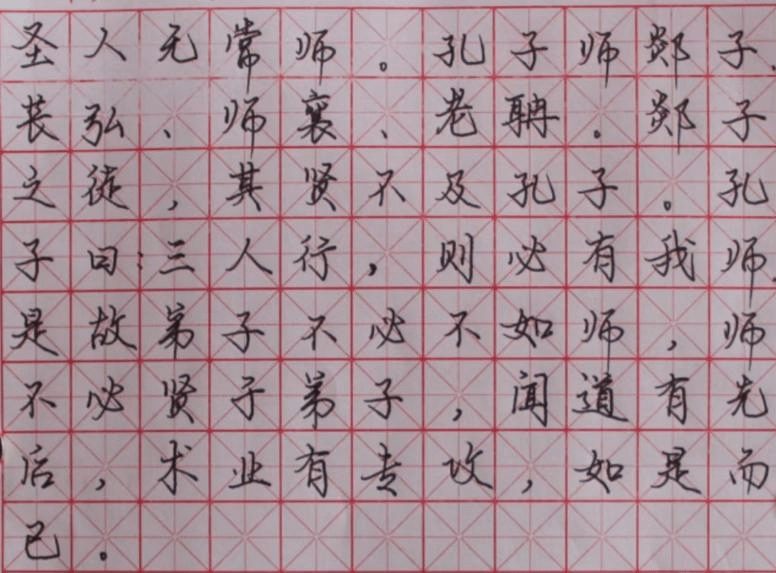 圣人无常师。孔子师郯子、
苌弘、师襄、老聃。郯子
之徒，其贤不及孔子。孔
子曰:三人行，则必有我师
是故弟子不必不如师，师
不必贤于弟子，闻道有先
后，术业有专攻，如是而
已。